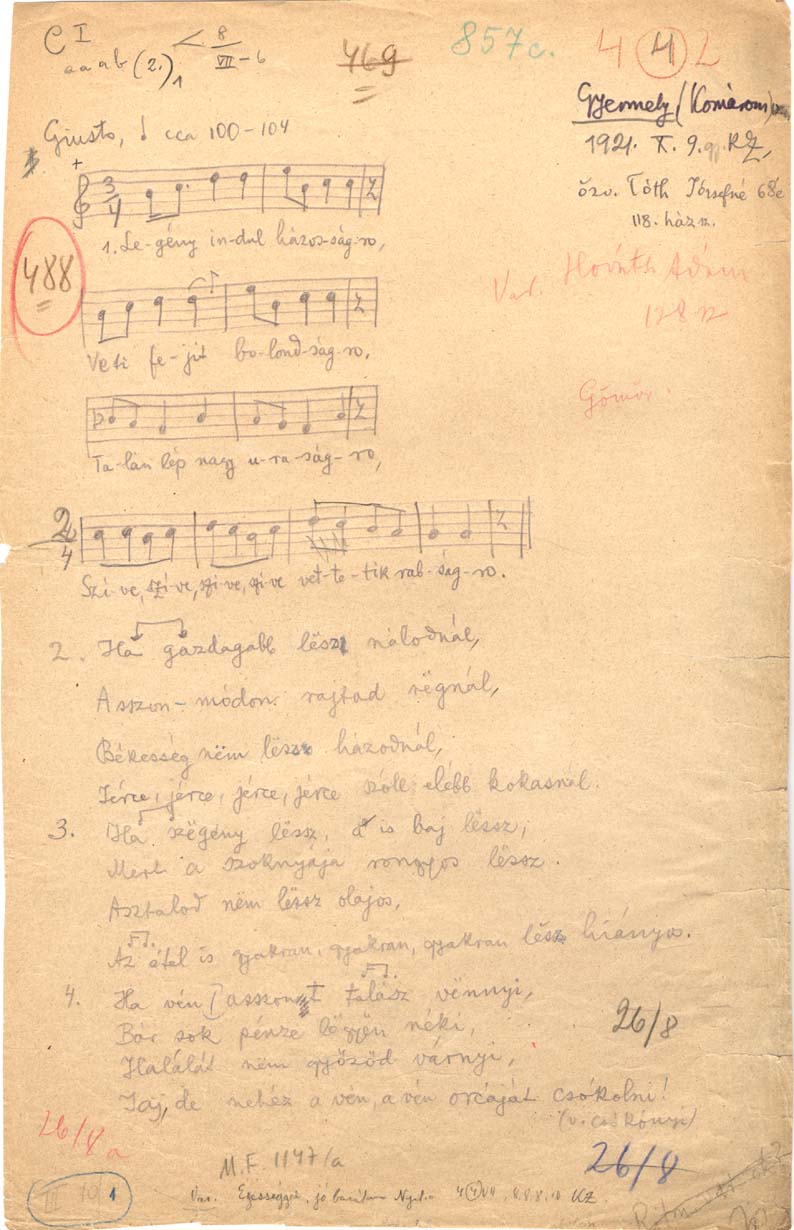 C I
a a a b (2.) 1 < 8 VII - 6
469
857c.
4 4 2
Gyermely (Komárom)
1921. X. 9. gy. KZ,
Giusto, cca 100-104
özv. Tóth Józsefné 68é
118. ház
3/4
1. Le-gény in-dul házos-ság-ro,
488
Var. Horváth Ádám
128
Veti fe-jit bo-lond-ság-ro,
Gömör.
Ta-lán lép nagy u-ra-ság-ro,
2/4
Szi-ve, szi-ve, szi-ve, szi-ve vet-te-tik rab-ság-ro.
2. Ha gazdagabb lësz nálodnál,
Asszon-módon rajtad rëgnál,
Békesség nëm lëssz házodnál,
Jérce, jérce, jérce, jérce szóll elébb kokasnál.
3. Ha szëgény lëssz, a is baj lëssz,
Mert a szoknyája rongyos lëssz.
Asztalod nëm lëssz olajos,
Az étel is gyakran, gyakran, gyakran lësz hiányos.
4. Ha vén asszont talász vënnyi,
Bár sok pénze lëgyën néki,
26/8
Halálát nem győzöd várnyi,
Jaj, de nehéz a vén, a vén orcáját csókolni!
(v. csókónyi)
26/8a
M.F. 1147/a
26/8
III 10/1
Var. Egésséggel, jó barátom Nyitra 4 4 VII 8.8.8.10 KZ.